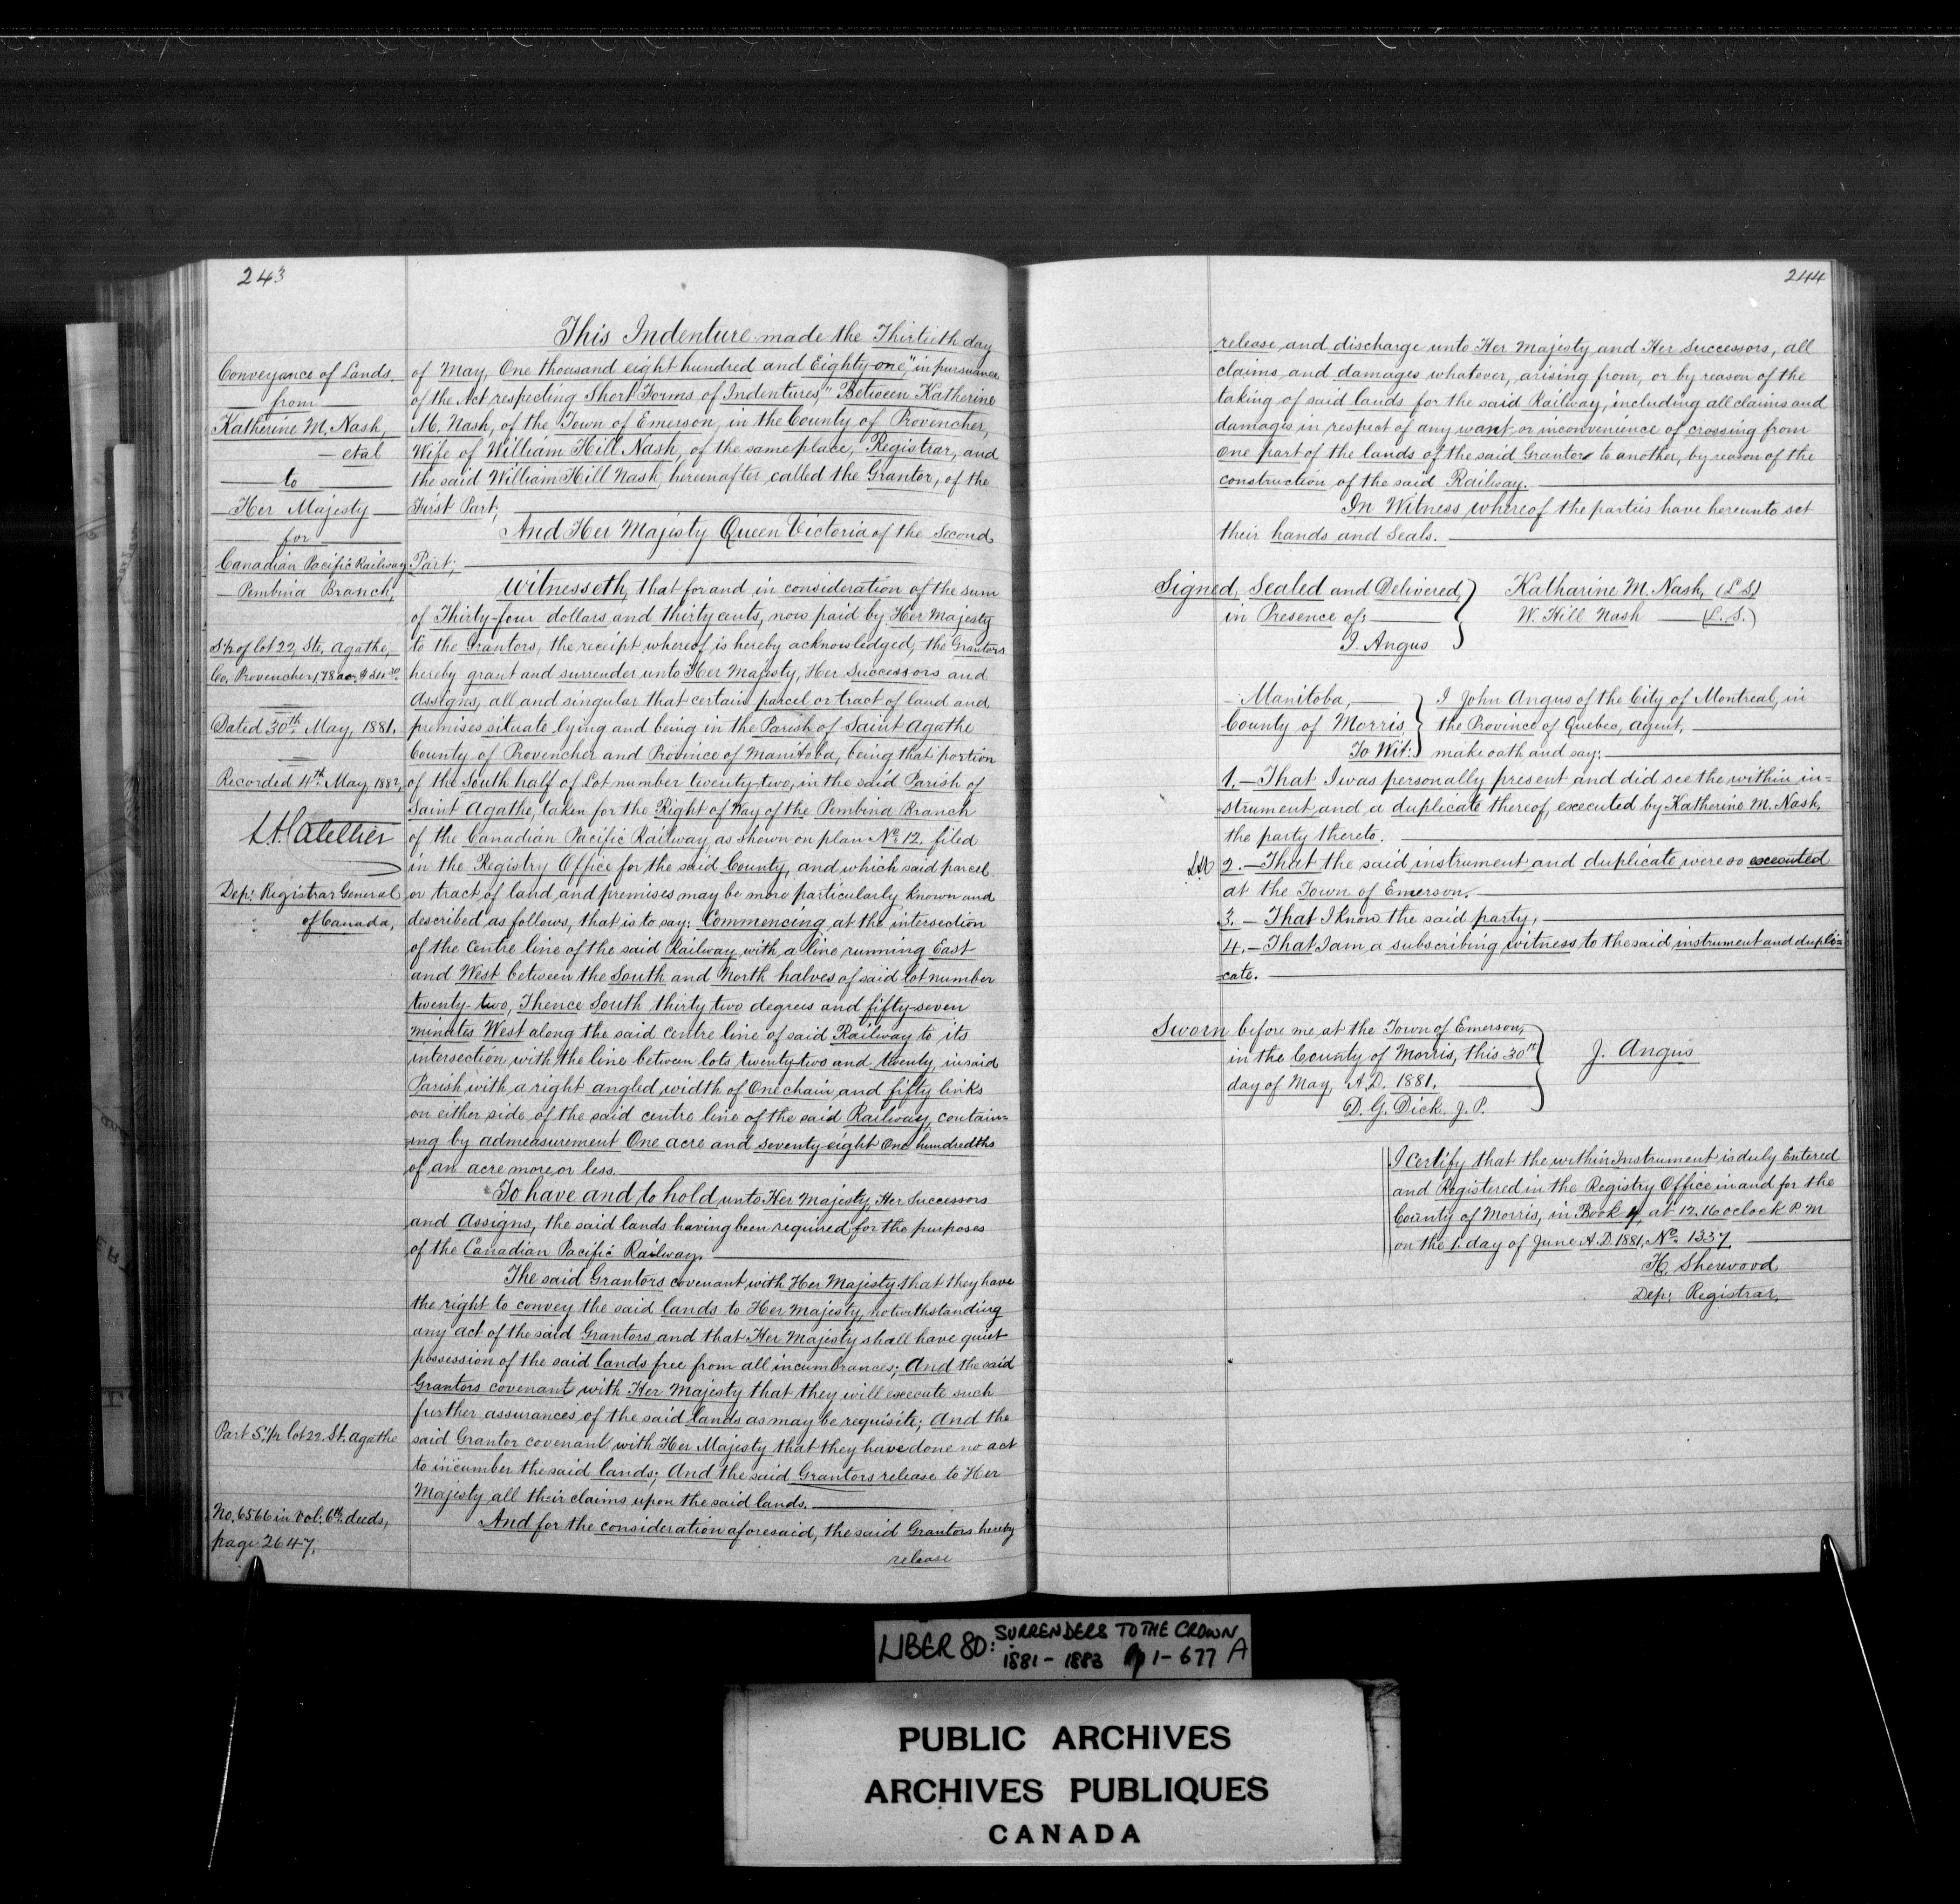 243
Conveyance of Lands.
from
Katherine M. Nash,
et al
to
Her Majesty
for
Canadian Pacific Railway
Pembina Branch,
S½ of lot 22, Ste. Agathe,
Co. Provencher, 1.78 ac. $34.30
Dated 30th May, 1881.
Recorded 4th May 1882,
Dep: Registrar General
of Canada,
Part S. ½ lot 22. St. Agathe
No. 6566 in Vol. 6th deeds,
page 2647.
This Indenture made the Thirtieth day
of May, One thousand eight hundred and Eighty-one, "in pursuance
of the Act respecting Short Forms of Indentures," Between Katherine
M. Nash, of the Town of Emerson, in the County of Provencher,
Wife of William Hill Nash, of the same place, Registrar, and
the said William Hill Nash, hereinafter called the Grantor, of the
First Part;
And Her Majesty Queen Victoria of the Second
Part;
Witnesseth, that for and in consideration of the sum
of Thirty-four dollars and thirty cents, now paid by Her Majesty
to the Grantors, the receipt whereof is hereby acknowledged, the Grantors
hereby grant and surrender unto Her Majesty, Her Successors and
Assigns, all and singular that certain parcel or tract of land and
premises situate lying and being in the Parish of Saint Agathe
County of Provencher and Province of Manitoba, being that portion
of the South half of Lot number twenty-two, in the said Parish of
Saint Agathe, taken for the Right of Way of the Pembina Branch
of the Canadian Pacific Railway, as shown on plan No. 12. filed
in the Registry Office for the said County, and which said parcel
or tract of land and premises may be more particularly known and
described as follows, that is to say: Commencing at the intersection
of the centre line of the said Railway with a line running East
and West between the South and North halves of said lot number
twenty-two, Thence South thirty two degrees and fifty-seven
minutes West along the said centre line of said Railway to its
intersection with the line between lots twenty-two and twenty, in said
Parish with a right angled width of One chain and fifty links
on either side of the said centre line of the said Railway, contain=
=ing by admeasurement One acre and seventy-eight One hundredths
of an acre more or less.
To have and to hold unto Her Majesty, Her Successors
and Assigns, the said lands having been required for the purposes
of the Canadian Pacific Railway.
The said Grantors covenant with Her Majesty that they have
the right to convey the said lands to Her Majesty, notwithstanding
any act of the said Grantors and that Her Majesty shall have quiet
possession of the said lands free from all incumbrances; And the said
Grantors covenant with Her Majesty that they will execute such
further assurances of the said lands as may be requisite; And the
said Grantor covenant with Her Majesty that they have done no act
to incumber the said lands; And the said Grantors release to Her
Majesty all their claims upon the said lands.
And for the consideration aforesaid, the said Grantors hereby
release
244
release and discharge unto Her Majesty and Her Successors, all
claims and damages whatever, arising from, or by reason of the
taking of said lands for the said Railway, including all claims and
damages in respect of any want or inconvenience of crossing from
one part of the lands of the said Grantors to another, by reason of the
construction of the said Railway.
In Witness whereof the parties have hereunto set
their hands and Seals.
Signed, Sealed and Delivered, Katharine M. Nash, (L.S)
in Presence of: W. Hill Nash (L.S.)
J. Angus
Manitoba, I John Angus of the City of Montreal, in
County of Morris the Province of Quebec, agent,
To Wit: make oath and say:
1. That I was personally present and did see the within in=
=strument and a duplicate thereof, executed by Katherine M. Nash,
the party thereto.
2. That the said instrument and duplicate were so executed
at the Town of Emerson.
3. That I know the said party,
4. That I am a subscribing witness to the said instrument and dupli=
=cate.
Sworn before me at the Town of Emerson,
in the County of Morris, this 30th J. Angus
day of May, A.D. 1881.
D. G. Dick. J. P.
I Certify that the within Instrument is duly Entered
and Registered in the Registry Office in and for the
County of Morris, in Book at 12.16 oclock P.M
on the 1. day of June A.D. 1881, No. 1337
H. Sherwood
Dep: Registrar.
LIBER 80: SURRENDERS TO THE CROWN
1881 - 1883 pp 1 - 677 A
PUBLIC ARCHIVES
ARCHIVES PUBLIQUES
CANADA